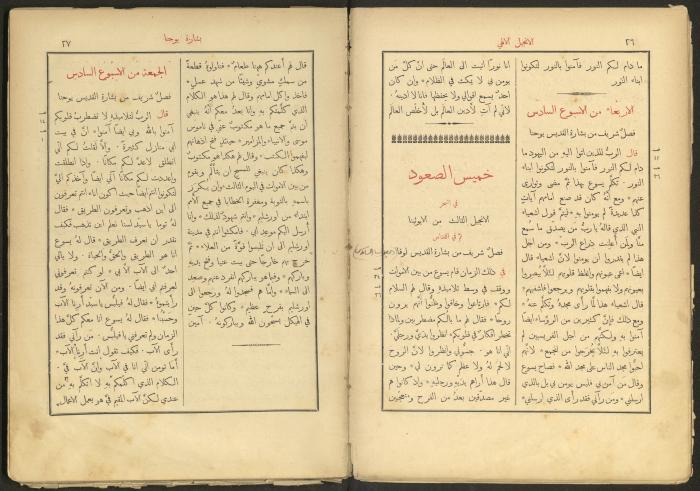 ٢٦
الانجيل الالهي
ما دام لكم النور فآمنوا بالنور لتكونوا
ابناء النور
الاربعاء من الاسبوع السادس
فصل شريف من بشارة القديس يوحنا
قال الرب للذين اتوا اليه من اليهود ما
دام لكم النور فآمنوا بالنور لتكونوا ابناء
النور * تكلم يسوع بهذا ثم مضى وتوارى
عنهم * ومع أنه كان قد صنع امامهم آيات
كذا عديدة لم يومنوا به * ليتم قول اشعياء
النبي الذي قاله يا رب من يصدق ما سمع
منا ولمن أعلنت ذراع الرب * ومن اجل
هذا لم يقدروا ان يومنوا لأن اشعياء قال
ايضا * اعمى عيونهم واغلظ قلوبهم لئلا يبصروا
بعيونهم ولا يفهموا بقلوبهم ويرجعوا فاشفيهم *
قال اشعياء هذا لما رأى مجده وتكلم عنه *
ومع ذلك فإن كثيرين من الرؤساء ايضا
آمنوا به ولكنهم من اجل الفريسيين لم
يعترفوا به لئلا يخرجوا من المجمع * لانهم
احبوا مجد الناس على مجد الله * فصاح يسوع
وقال من آمن بي فليس يومن بي بل بالذي
ارسلني * ومن رآني فقد رأى الذي ارسلني *
انا نورا اتيت الى العالم حتى ان كل من
يومن بي لا يمكث في الظلام * وإن كان
احد يسمع اقوالي ولا يحفظها فانا لا ادينه *
لاني لم آت لأدين العالم بل لأخلص العالم
خميس الصعود
في السحر
الانجيل الثالث من الايوثينا
ثم في القداس
فصل شريف من بشارة القديس لوقا
في ذلك الزمان قام يسوع من بين الاموات
ووقف في وسط تلاميذه وقال لهم السلام
لكم * فارتاعوا وخافوا وظنوا انهم يرون
روحا * فقال لهم ما بالكم مضطربين ولماذا
تخطر افكار في قلوبكم * انظروا يدي ورجلي
اني انا هو * جسوني وانظروا لان الروح
لا لحم له ولا عظم كما ترون لي * وحين
قال هذا أراهم يديه ورجليه * واذ كانوا هم
غير مصدقين بعد من الفرح ومتعجبين
بشارة يوحنا
٢٧
قال لهم أعندكم ههنا طعام * فناولوه قطعة
من سمك مشوي وشيئا من شهد عسل *
فاخذ واكل امامهم * وقال لهم هذا هو الكلام
الذي كلمتكم به وانا بعد معكم أنه ينبغي
ان يتم جميع ما هو مكتوب عني في ناموس
موسى والانبياء والمزامير * حينئذ فتح اذهانهم
ليفهموا الكتب * وقال لهم هكذا هو مكتوب
وهكذا كان ينبغي للمسيح ان يتألم ويقوم
من بين الاموات في اليوم الثالث * وان يكرز
باسمه بالتوبة ومغفرة الخطايا في جميع الامم
ابتداء من اورشليم * وانتم شهود لذلك * وانا
أرسل اليكم موعد ابي * فامكثوا انتم في مدينة
اورشليم الى ان تلبسوا قوة من العلاء * ثم
خرج بهم خارجا حتى بيت عنيا وفتح يديه
وباركهم * وفيما هو يباركهم انفرد عنهم وصعد
الى السماء * وأما هم فسجدوا له ورجعوا الى
اورشليم بفرح عظيم * وكانوا كل حين
في الهيكل يسبحون الله ويباركونه * آمين
الجمعة من الاسبوع السادس
فصل شريف من بشارة القديس يوحنا
قال الرب لتلاميذه لا تضطرب قلوبكم
آمنوا بالله وبي ايضا آمنوا * ان في بيت
ابي منازل كثيرة * وإلا لقلت لكم اني
انطلق لاعد لكم مكانا * واذا انطلقت
واعددت لكم مكانا آتي ايضا وآخذكم الي
لتكونوا انتم ايضا حيث اكون انا * انتم تعرفون
الى اين اذهب وتعرفون الطريق * فقال
له توما يا سيد لسنا نعلم اين تذهب فكيف
نقدر ان نعرف الطريق * قال له يسوع
انا هو الطريق والحق والحياة * ولا ياتي
احد الى الآب الا بي * لو كنتم تعرفوني
لعرفتم ابي ايضا * ومن الآن تعرفونه وقد
رأيتموه * فقال له فيلبس يا سيد أرنا الآب
وحسبنا * فقال له يسوع انا معكم كل هذا
الزمان ولم تعرفني يا فيلبس * من رآني فقد
رأى الآب * فكيف تقول انت أرنا الآب
أما تومن اني انا في الآب وإن الآب في *
الكلام الذي اكلمكم به لا اتكلم به من
عندي لكن الآب المقيم في هو يعمل الاعمال *